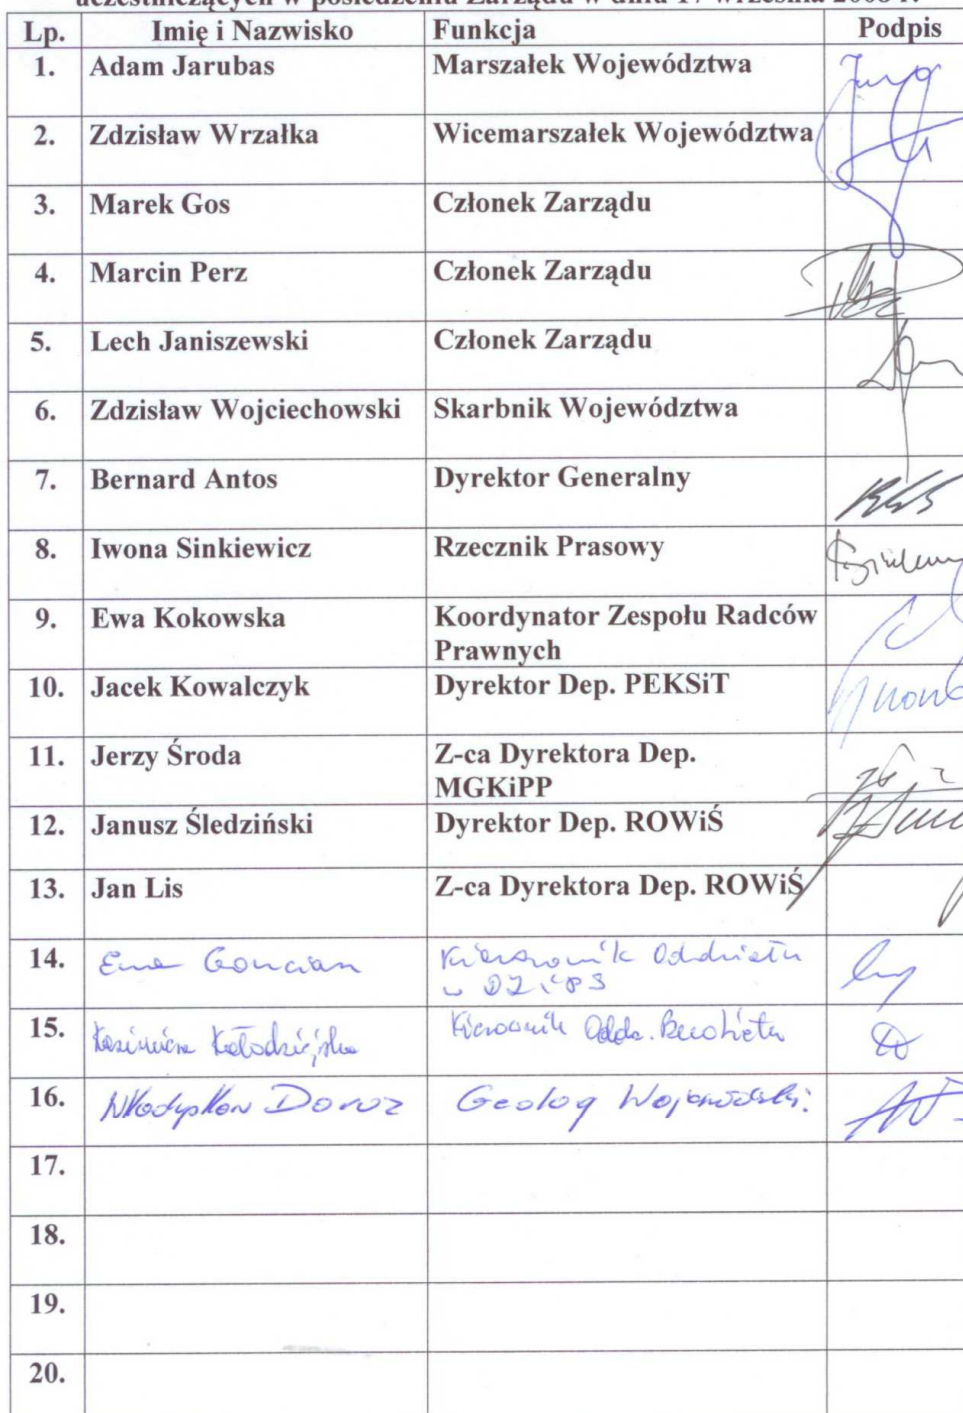 uczestniczących w posiedzeniu Zarządu w dniu 17 września 2008 r.
Lp. Imię i Nazwisko Funkcja Podpis
1. Adam Jarubas Marszałek Województwa
2. Zdzisław Wrzałka Wicemarszałek Województwa
3. Marek Gos Członek Zarządu
4. Marcin Perz Członek Zarządu
5. Lech Janiszewski Członek Zarządu
6. Zdzisław Wojciechowski Skarbnik Województwa
7. Bernard Antos Dyrektor Generalny
8. Iwona Sinkiewicz Rzecznik Prasowy
9. Ewa Kokowska Koordynator Zespołu Radców
Prawnych
10. Jacek Kowalczyk Dyrektor Dep. PEKSiT
11. Jerzy Środa Z-ca Dyrektora Dep.
MGKiPP
12. Janusz Śledziński Dyrektor Dep. ROWiŚ
13. Jan Lis Z-ca Dyrektora Dep. ROWiŚ
14. Ewa Kierownik Oddziału
w
15. Kazimiera Kołodziejska Kierownik Oddz.
16. Władysław Geolog Wojewódzki
17.
18.
19.
20.